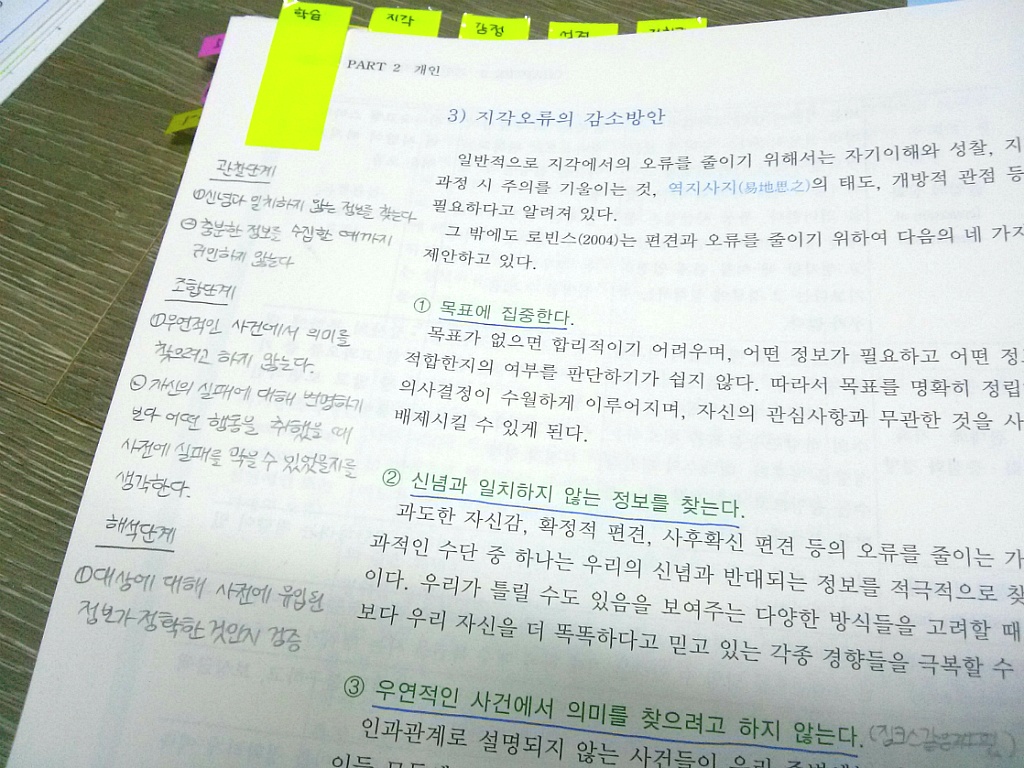 학습
지각
감정
성격
PART 2 개인
3) 지각오류의 감소방안
일반적으로 지각에서의 오류를 줄이기 위해서는 자기이해와 성찰, 지
과정 시 주의를 기울이는 것, 역지사지(易地思之)의 태도, 개방적 관점 등
필요하다고 알려져 있다.
그 밖에도 로빈스(2004)는 편견과 오류를 줄이기 위하여 다음의 네 가지
제안하고 있다.
① 목표에 집중한다.
목표가 없으면 합리적이기 어려우며, 어떤 정보가 필요하고 어떤 정
적합한지의 여부를 판단하기가 쉽지 않다. 따라서 목표를 명확히 정립
의사결정이 수월하게 이루어지며, 자신의 관심사항과 무관한 것을 사
배제시킬 수 있게 된다.
② 신념과 일치하지 않는 정보를 찾는다.
과도한 자신감, 확정적 편견, 사후확신 편견 등의 오류를 줄이는 가
과적인 수단 중 하나는 우리의 신념과 반대되는 정보를 적극적으로 찾
이다. 우리가 틀릴 수도 있음을 보여주는 다양한 방식들을 고려할 때
보다 우리 자신을 더 똑똑하다고 믿고 있는 각종 경향들을 극복할 수
③ 우연적인 사건에서 의미를 찾으려고 하지 않는다. (징크스같은
인과관계로 설명되지 않는 사건들이 우리
관찰단계
①신념과 일치하지 않는 정보를 찾는다
② 충분한 정보를 수집할 때까지
귀인하지 않는다
조합단계
①우연적인 사건에서 의미를
찾으려고 하지 않는다.
② 자신의 실패에 대해 변명하기
보다 어떤 행동을 취했을 때
사전에 실패를 막을 수 있었을지를
생각한다.
해석단계
①대상에 대해 사전에 유입된
정보가 정확한 것인지 검증